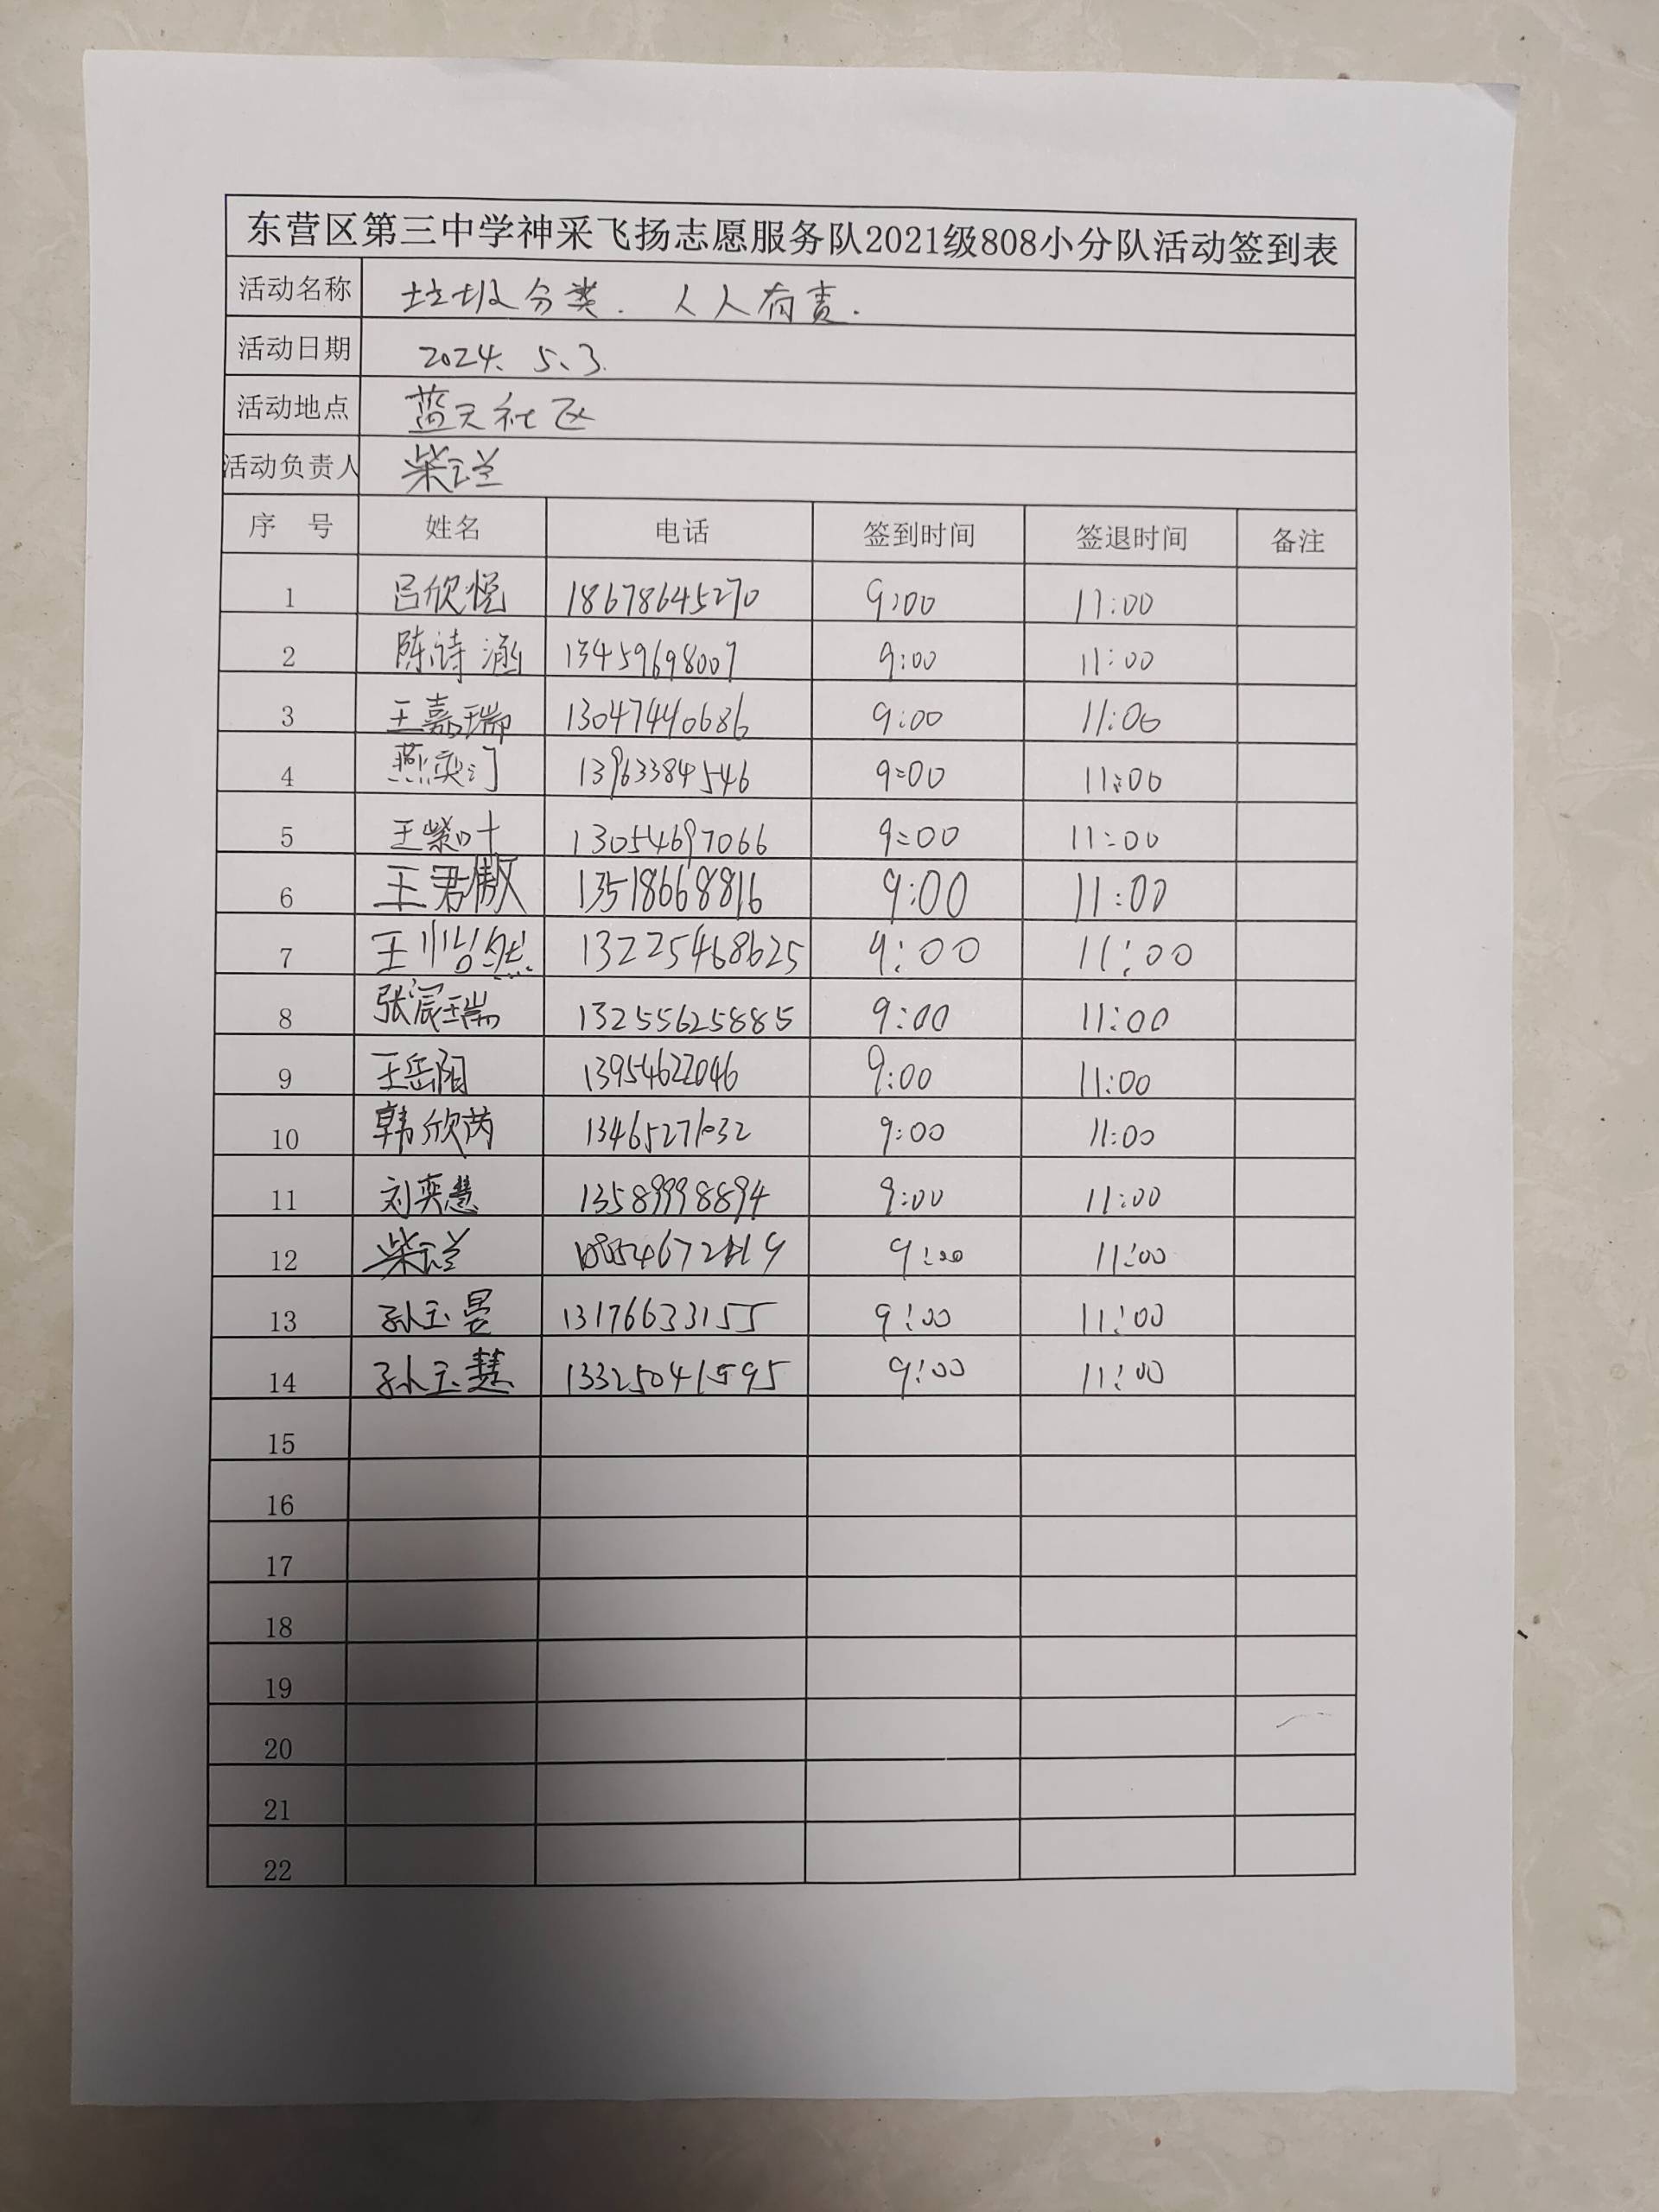 东营区第三中学神采飞扬志愿服务队2021级808小分队活动签到表
活动名称 垃圾分类. 人人有责.
活动日期 2024. 5、3.
活动地点 蓝天社区
活动负责人 柴
序 号 姓名 电话 签到时间 签退时间 备注
1 吕欣悦 18678645270 9:00 11:00
2 陈诗涵 13459698007 9:00 11:00
3 王嘉瑞 13047440686 9:00 11:00
4 燕奕汀 13963384546 9:00 11:00
5 王紫叶 13054697066 9:00 11:00
6 王君傲 13518668816 9:00 11:00
7 王怡然 13225468625 9:00 11:00
8 张宸瑞 13255625885 9:00 11:00
9 王岳阳 13954622046 9:00 11:00
10 韩欣芮 13465271032 9:00 11:00
11 刘奕慧 13589998894 9:00 11:00
12 柴 9:00 11:00
13 孙玉昱 13176633155 9:00 11:00
14 孙玉慧 13325041595 9:00 11:00
15
16
17
18
19
20
21
22